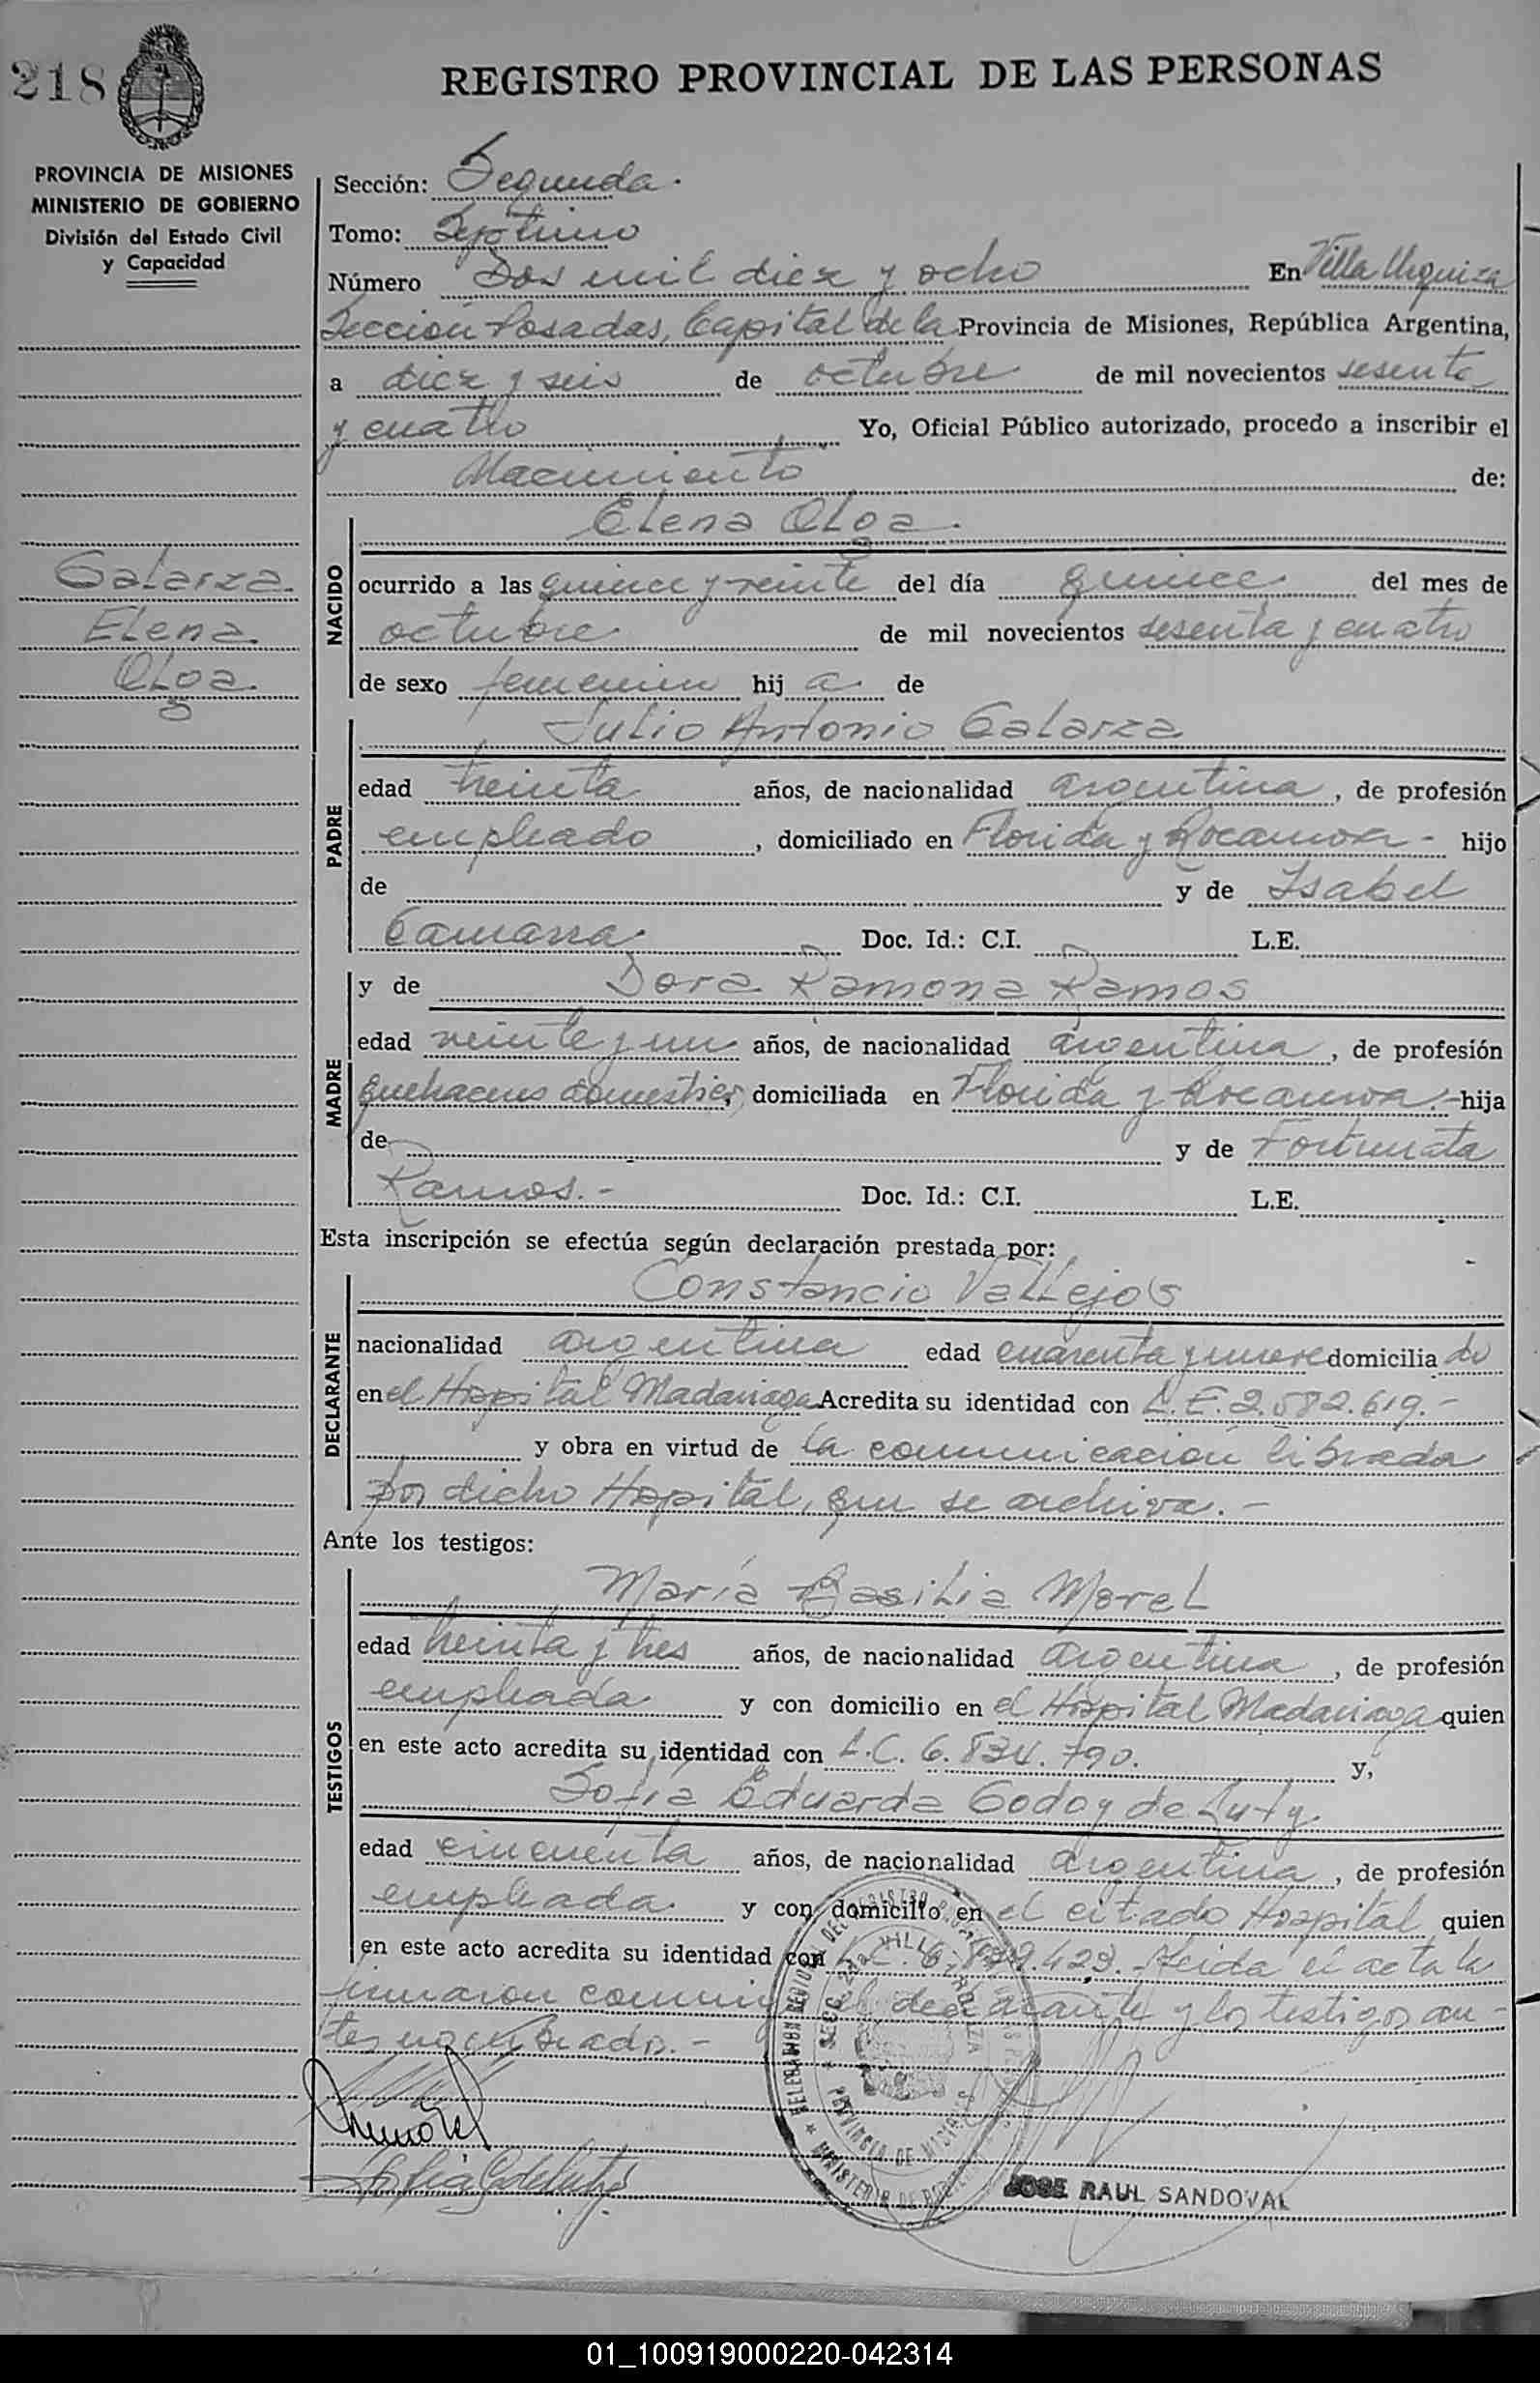 218
REGISTRO PROVINCIAL DE LAS PERSONAS
PROVINCIA DE MISIONES
MINISTERIO DE GOBIERNO
División del Estado Civil
y Capacidad
Sección: Segunda.
Tomo: Septimo
Número Dos mil diez y ocho En Villa Urquiza
Sección Posadas, Capital de la Provincia de Misiones, República Argentina,
a diez y seis de octubre de mil novecientos sesenta
y cuatro Yo, Oficial Público autorizado, procedo a inscribir el
Nacimiento de:
Elena Olga.
Galarza.
Elena
Olga.
NACIDO
ocurrido a las quince y veinte del día quince del mes de
octubre de mil novecientos sesenta y cuatro
de sexo femenino hij a de
Julio Antonio Galarza
PADRE
edad treinta años, de nacionalidad argentina, de profesión
empleado, domiciliado en Florida y Rocamora - hijo
de y de Isabel
Gamarra. Doc. Id.: C.I. L.E.
y de Dora Ramona Ramos
MADRE
edad veinte y un años, de nacionalidad argentina, de profesión
quehaceres domesticos, domiciliada en Florida y Rocamora.- hija
de y de Fortunata
Ramos.- Doc. Id.: C.I. L.E.
Esta inscripción se efectúa según declaración prestada por:
Constancio Vallejos
DECLARANTE
nacionalidad argentina edad cuarenta y nueve domicilia do
en el Hospital Madariaga Acredita su identidad con L.E. 2.582.619.-
y obra en virtud de la comunicación librada
por dicho Hospital, que se archiva.-
Ante los testigos:
María Basilia Morel
TESTIGOS
edad treinta y tres años, de nacionalidad argentina, de profesión
empleada y con domicilio en el Hospital Madariaga quien
en este acto acredita su identidad con L.C. 6.834.790. y,
Sofia Eduarda Godoy de Luty.
edad cincuenta años, de nacionalidad argentina, de profesión
empleada. y con domicilio en el citado Hospital quien
en este acto acredita su identidad con L.C. 6. .423.- Leida el acta la
firmaron conmigo el declarante y los testigos an-
tes nombrados.-
MINISTERIO DE GOBIERNO
PROVINCIA DE MISIONES
JOSE RAUL SANDOVAL
01_100919000220-042314